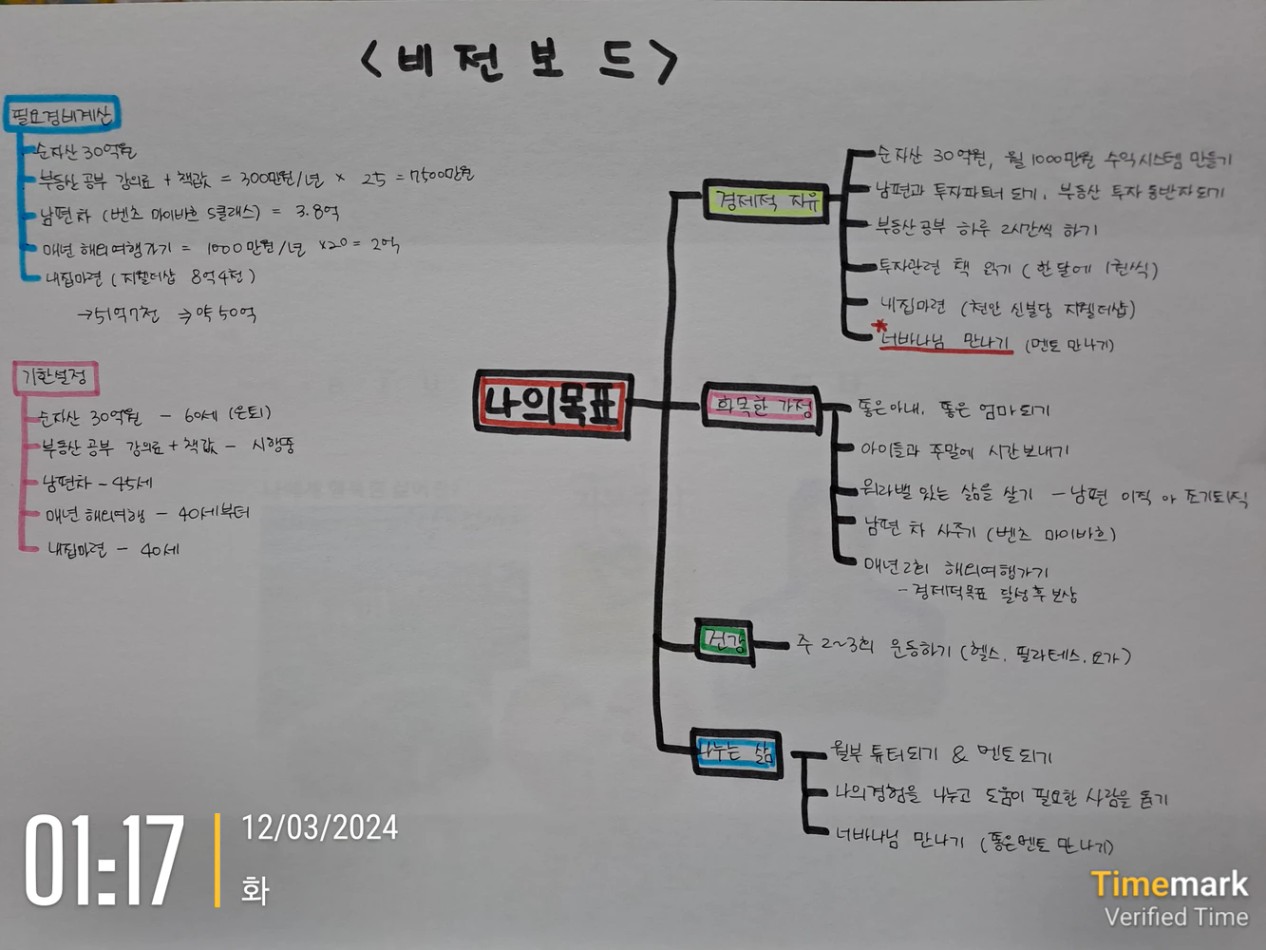 <비전보드>
필요경비계산
순자산 30억원
부동산 공부 강의료 + 책값 = 300만원/년 × 25 = 7500만원
남편 차 (벤츠 마이바흐 S클래스) = 3.8억
매년 해외여행가기 = 1000만원/년 ×20 = 2억
내집마련 (지웰더샵 8억4천)
→51억7천 ⇒ 약 50억
기한설정
순자산 30억원 - 60세 (은퇴)
부동산 공부 강의료 + 책값 - 시행중
남편차 - 45세
매년 해외여행 - 40세부터
내집마련 - 40세
나의목표
경제적 자유
순자산 30억원, 월 1000만원 수익시스템 만들기
남편과 투자파트너 되기, 부동산 투자 동반자되기
부동산공부 하루 2시간씩 하기
투자관련 책 읽기 (한달에 1권씩)
내집마련 (천안 신불당 지웰더샵)
*너바나님 만나기 (멘토 만나기)
화목한 가정
좋은아내, 좋은 엄마되기
아이들과 주말에 시간보내기
워라밸 있는 삶을 살기 - 남편 이직 or 조기퇴직
남편 차 사주기 (벤츠 마이바흐)
매년2회 해외여행가기
- 경제적목표 달성후 보상
건강
주 2~3회 운동하기 (헬스, 필라테스, 요가)
나누는 삶
월부 튜터되기 & 멘토되기
나의경험을 나누고 도움이 필요한 사람을 돕기
너바나님 만나기 (좋은멘토 만나기)
01:17
12/03/2024
화
Timemark
Verified Time